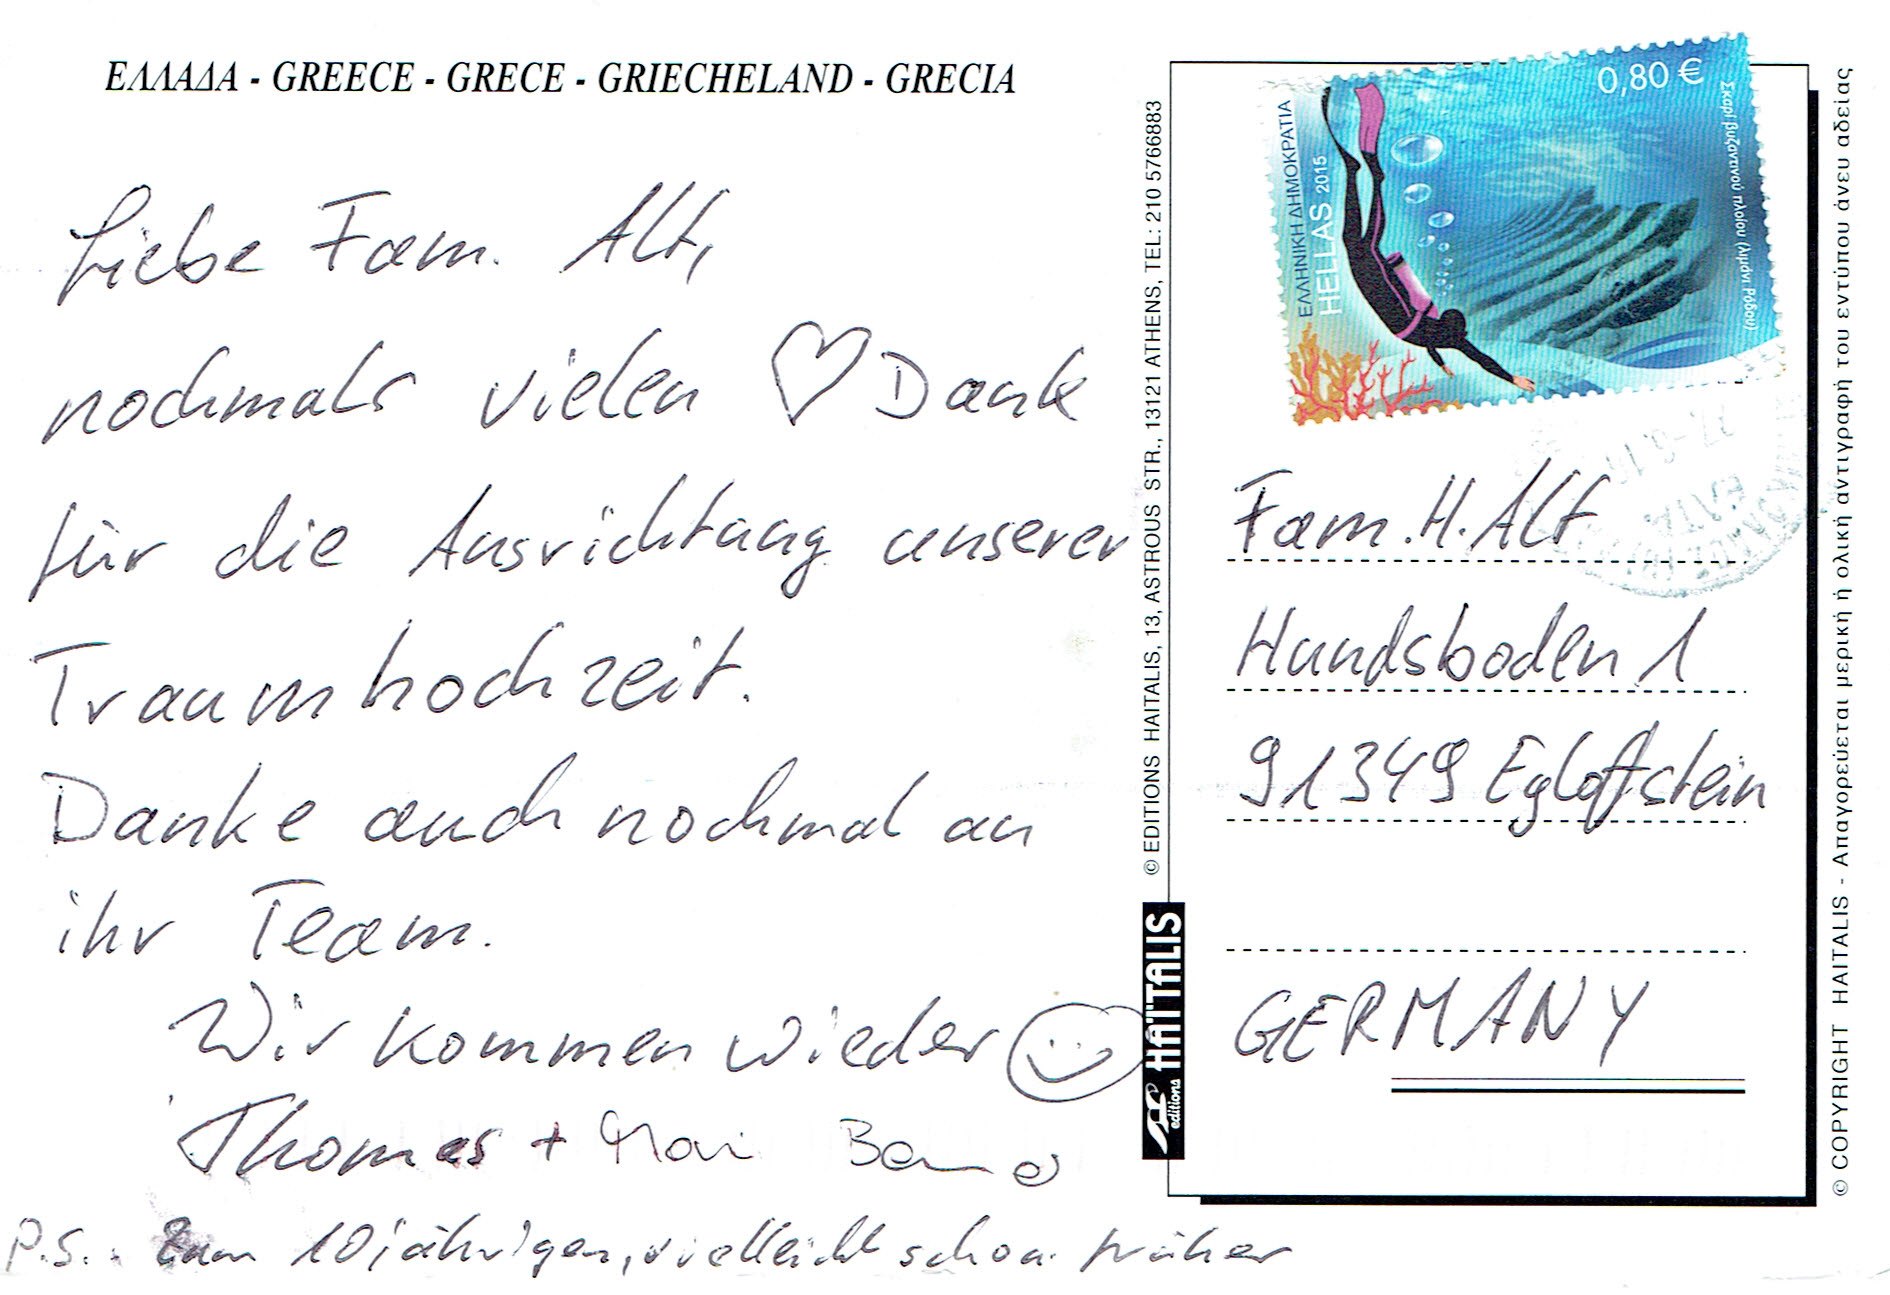 ΕΛΛΑΔΑ - GREECE - GRECE - GRIECHELAND - GRECIA
Liebe Fam. Alt,
nochmals vielen ♡ Dank
für die Ausrichtung unserer
Traumhochzeit.
Danke auch nochmal an
ihr Team.
Wir kommen wieder
Thomas +
P.S.: Zum 10jährigen, vielleicht schon früher
© EDITIONS HAITALIS, 13, ASTROUS STR., 13121 ATHENS, TEL: 210 5766883
editions HAÏTALIS
ΕΛΛΗΝΙΚΗ ΔΗΜΟΚΡΑΤΙΑ
HELLAS 2015
0,80 €
Σκαρί βυζαντινού πλοίου (λιμάνι Ρόδου)
Fam. H. Alt
Hundsboden 1
91349 Egloffstein
GERMANY
© COPYRIGHT HAITALIS - Απαγορεύεται μερική ή ολική αντιγραφή του εντύπου άνευ αδείας